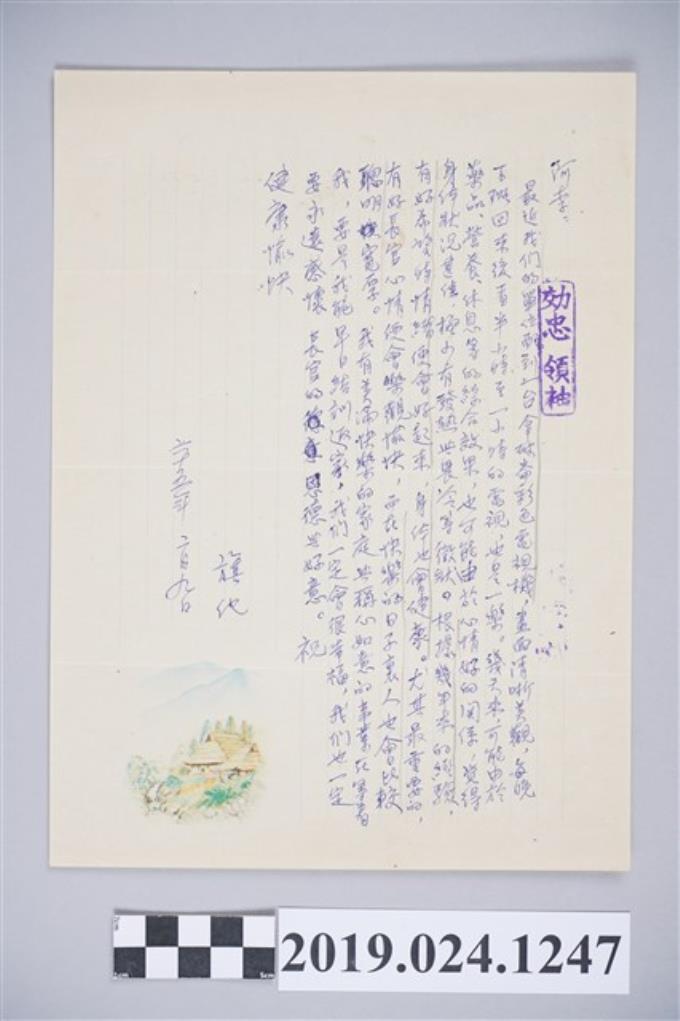 阿李：
最近我們的單位配到一台拿破崙彩色電視機，畫面清晰美觀，每晚
下班回來後看半小時至一小時的電視，也是一樂。幾天來，可能由於
藥品、營養、休息等的綜合效果，也可能由於心情好的關係，覺得
身体狀況甚佳，極少有發熱與畏冷等徵狀。根據幾年來的經驗，
有好
情緒便會好起來，身体也會健康。尤其最重要的，
有好長官心情便會樂觀愉快，而在快樂的日子裏人也會比較
聰明
寬厚。我有美滿快樂的家庭與稱心如意的事業在等着
我，要是我能早日結訓返家，我們一定會很幸福，我們也一定
要永遠感懷 長官的
恩德與好意。祝
健康愉快
旗化
六十五年 二月九日
効忠 領袖
2019.024.1247
1cm
5cm